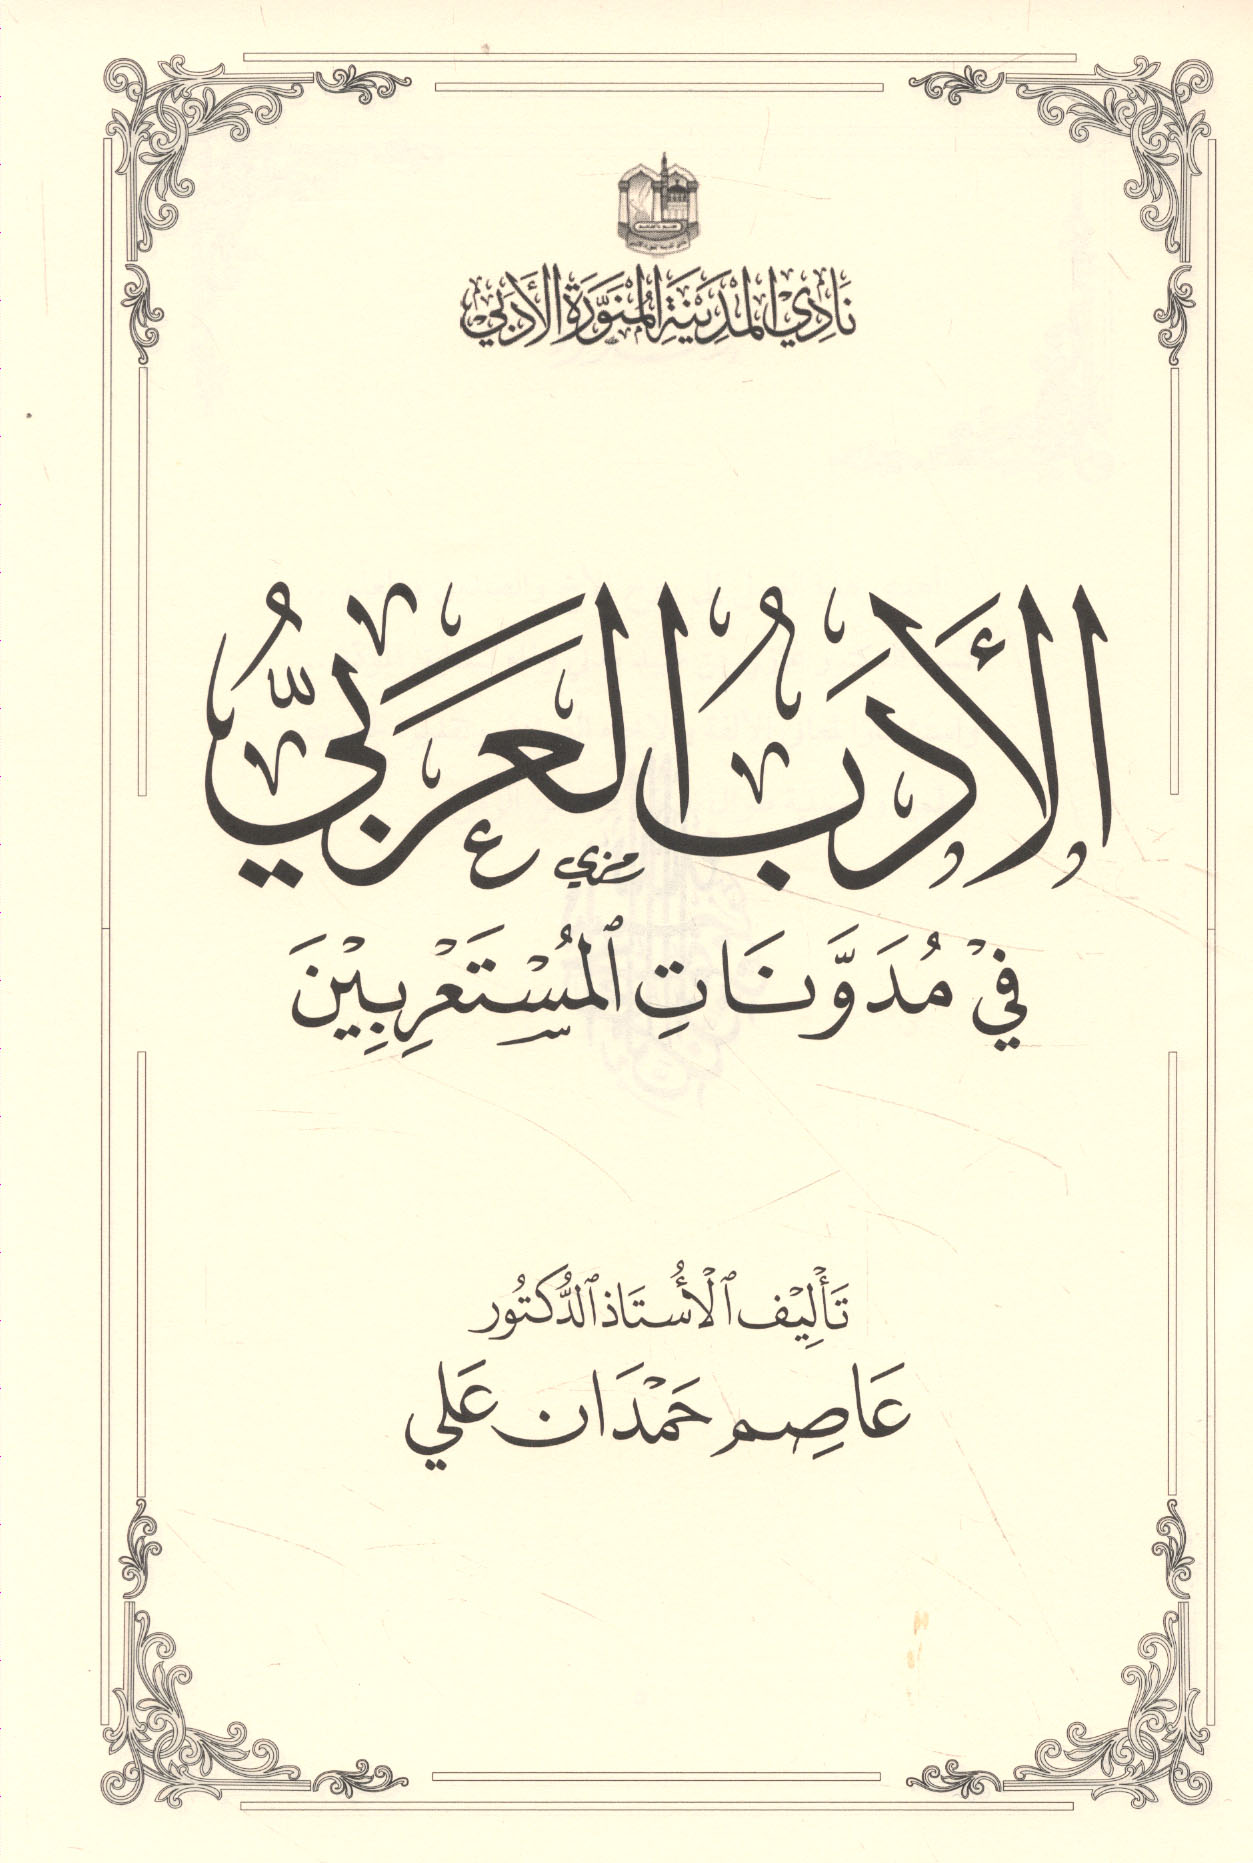 نَادِي الْمَدِينَةِ الْمُنَوَّرَةِ الأَدَبِي
الأَدَبُ العَرَبيُّ
فِيْ مُدَوَّنَاتِ ٱلمُسْتَعْرِبِيْنَ
تَأْلِيْف ٱلْأُسْتَاذ ٱلدُّكتُور
عَاصِم حَمْدَان عَلي